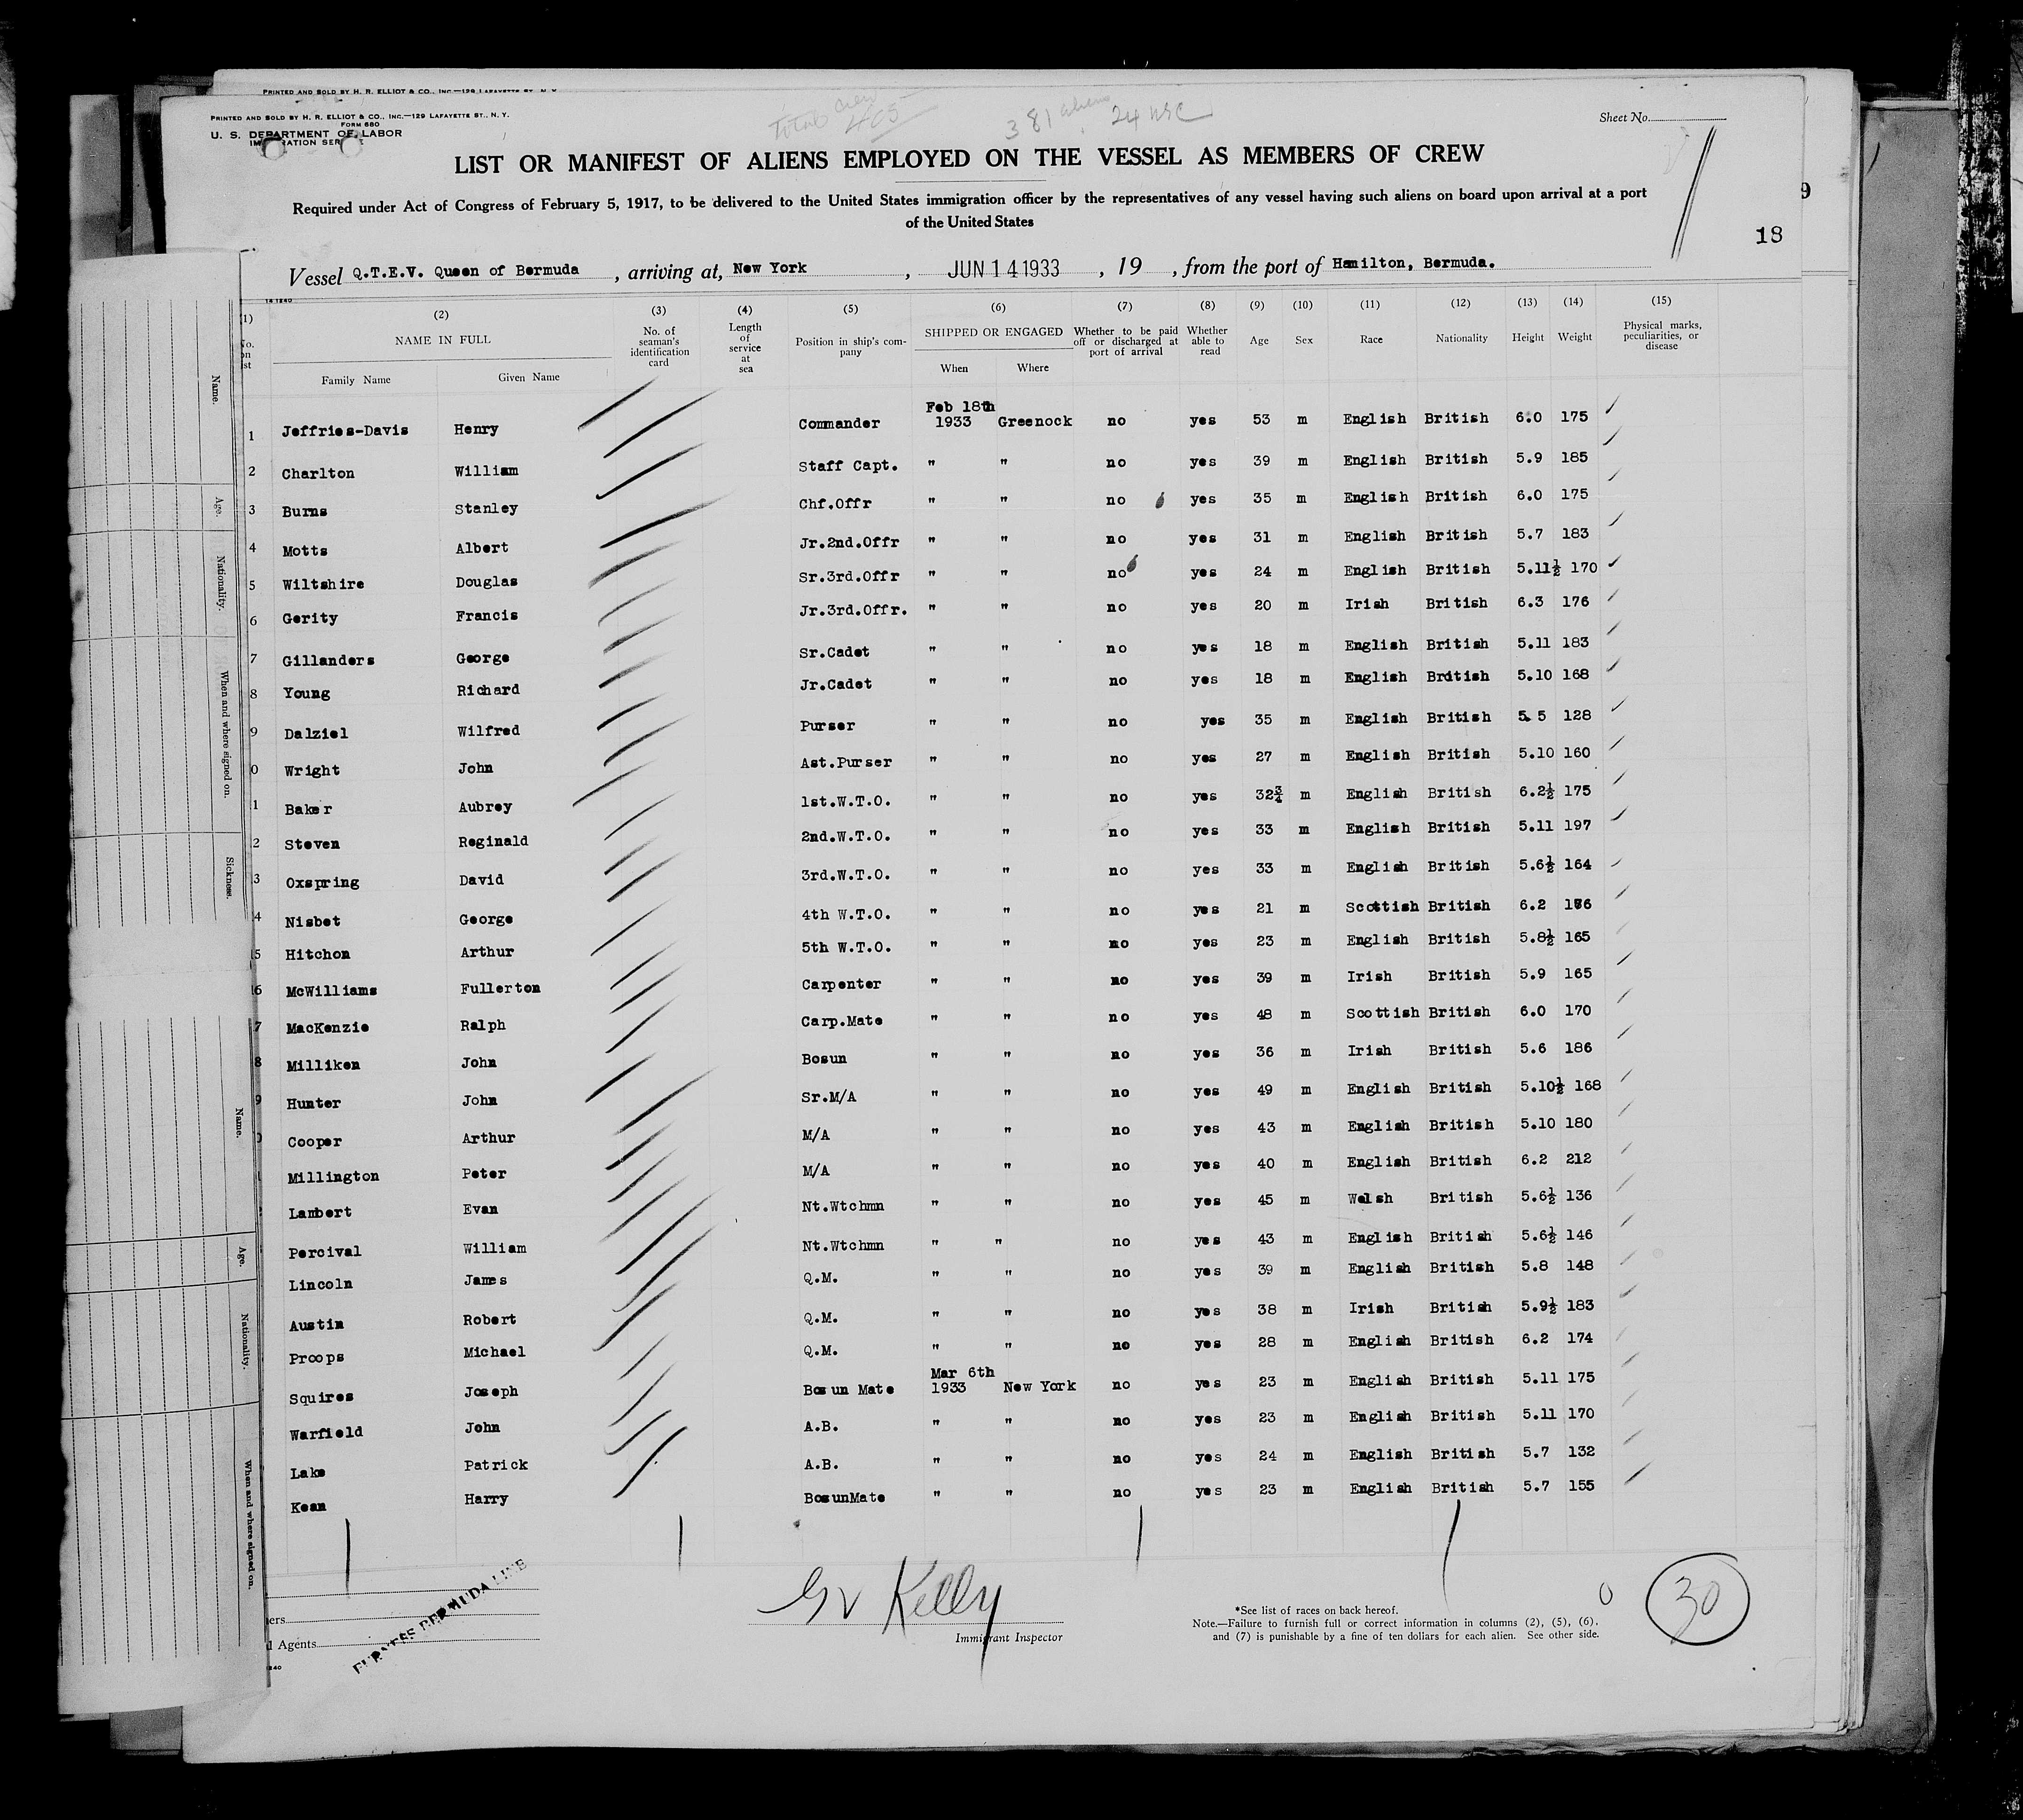 PRINTED AND SOLD BY H. R. ELLIOT & CO., INC.—129 LAFAYETTE ST., N. Y.
PRINTED AND SOLD BY H. R. ELLIOT & CO., INC.—129 LAFAYETTE ST., N. Y.
FORM 680
U. S. DEPARTMENT OF LABOR
Total crew 405 381 aliens 24 USC
Sheet No.
LIST OR MANIFEST OF ALIENS EMPLOYED ON THE VESSEL AS MEMBERS OF CREW
Required under Act of Congress of February 5, 1917, to be delivered to the United States immigration officer by the representatives of any vessel having such aliens on board upon arrival at a port
of the United States
9
18
Vessel Q.T.E.V. Queen of Bermuda , arriving at, New York , JUN 14 1933 , 19 , from the port of Hamilton, Bermuda.
(1) (2) (3) (4) (5) (6) (7) (8) (9) (10) (11) (12) (13) (14) (15)
NAME IN FULL
Family Name Given Name
No. of seaman's identification card
Length of service at sea
Position in ship's company
SHIPPED OR ENGAGED
When Where
Whether to be paid off or discharged at port of arrival
Whether able to read
Age Sex Race Nationality Height Weight
Physical marks, peculiarities, or disease
Feb 18th
1 Jeffries-Davis Henry Commander 1933 Greenock no yes 53 m English British 6.0 175
2 Charlton William Staff Capt. " " no yes 39 m English British 5.9 185
3 Burns Stanley Chf.Offr " " no yes 35 m English British 6.0 175
4 Motts Albert Jr.2nd.Offr " " no yes 31 m English British 5.7 183
5 Wiltshire Douglas Sr.3rd.Offr " " no yes 24 m English British 5.11½ 170
6 Gerity Francis Jr.3rd.Offr. " " no yes 20 m Irish British 6.3 176
7 Gillanders George Sr.Cadet " " no yes 18 m English British 5.11 183
8 Young Richard Jr.Cadet " " no yes 18 m English British 5.10 168
9 Dalziel Wilfred Purser " " no yes 35 m English British 5.5 128
0 Wright John Ast.Purser " " no yes 27 m English British 5.10 160
1 Baker Aubrey 1st.W.T.O. " " no yes 32¾ m English British 6.2½ 175
2 Steven Reginald 2nd.W.T.O. " " no yes 33 m English British 5.11 197
3 Oxspring David 3rd.W.T.O. " " no yes 33 m English British 5.6½ 164
4 Nisbet George 4th W.T.O. " " no yes 21 m Scottish British 6.2
5 Hitchon Arthur 5th W.T.O. " " no yes 23 m English British 5.8½ 165
6 McWilliams Fullerton Carpenter " " no yes 39 m Irish British 5.9 165
7 MacKenzie Ralph Carp.Mate " " no yes 48 m Scottish British 6.0 170
8 Milliken John Bosun " " no yes 36 m Irish British 5.6 186
9 Hunter John Sr.M/A " " no yes 49 m English British 5.10½ 168
Cooper Arthur M/A " " no yes 43 m English British 5.10 180
Millington Peter M/A " " no yes 40 m English British 6.2 212
Lambert Evan Nt.Wtchmn " " no yes 45 m Welsh British 5.6½ 136
Percival William Nt.Wtchmn " " no yes 43 m English British 5.6½ 146
Lincoln James Q.M. " " no yes 39 m English British 5.8 148
Austin Robert Q.M. " " no yes 38 m Irish British 5.9½ 183
Proops Michael Q.M. " " no yes 28 m English British 6.2 174
Mar 6th
Squires Joseph Bosun Mate 1933 New York no yes 23 m English British 5.11 175
Warfield John A.B. " " no yes 23 m English British 5.11 170
Lake Patrick A.B. " " no yes 24 m English British 5.7 132
Kean Harry BosunMate " " no yes 23 m English British 5.7 155
Name.
Age.
Nationality.
When and where signed on.
Sickness.
Name.
Age.
Nationality.
When and where signed on.
Agents
FURNESS BERMUDA LINE
GV Kelly
Immigrant Inspector
*See list of races on back hereof.
Note.—Failure to furnish full or correct information in columns (2), (5), (6),
and (7) is punishable by a fine of ten dollars for each alien. See other side.
0
30